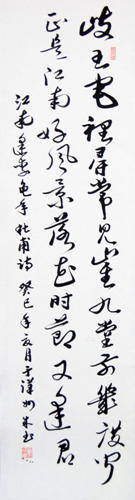 歧王宅裡尋常見崔九堂前幾度聞
正是江南好風景落花時節又逢君
江南逢李龜年杜甫詩癸巳年亥月于漢州